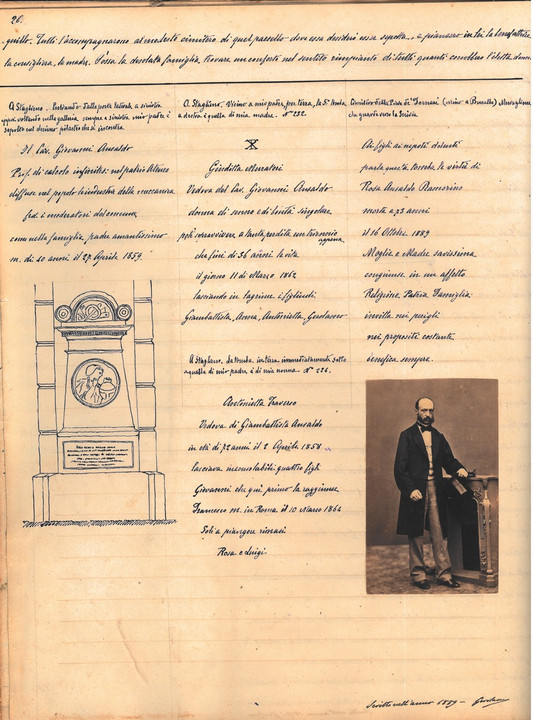 26.
quillo. Tutti l'accompagnarono al modesto cimitero di quel paesello dove essa desiderò esser sepolta e piansero in lei la benefattrice,
la consigliera, la madre. Possa la desolata famiglia, trovare un conforto nel sentito rimpianto di tutti quanti conobbero l'eletta donna
A Staglieno. Entrando dalla porta laterale a sinistra
appena voltando nella galleria sempre a sinistra mio padre è
sepolto nel decimo pilastro
Il Cav. Giovanni Ansaldo
Prof. di calcolo infinites: nel patrio Ateneo
diffuse nel popolo le industrie della meccanica
fra i moderatori del comune
come nella famiglia padre amantissimo
m. di 40 anni il 27 Aprile 1859
A Staglieno. Vicino a mio padre, per terra, la 5a tomba
a destra è quella di mia madre. No 232.
X
Giuditta Muratori
Vedova del Cav. Giovanni Ansaldo
donna di senno e di bontà singolare
potè sopravvivere a tanta perdita un triennio
appena
che finì di 36 anni la vita
il giorno 11 di Marzo 1862
lasciando in lagrime i figliuoli
Giambattista, Anna, Antonietta, Gustavo
A Staglieno. La tomba in terra immediatamente sotto
a quella di mio padre, è di mia nonna. No 226.
Antonietta Traverso
Vedova di Giambattista Ansaldo
in età di 72 anni il 2 Aprile 1858
lasciava inconsolabili quattro figli
Giovanni che quì primo la raggiunse
Francesco m. in Roma il 10 Marzo 1864
Soli a piangere rimasti
Rosa e Luigi.
Cimitero della Pieve di (vicino a )
che guarda verso la
Ai figli ai nepoti dolenti
parla questa tomba le virtù di
Rosa Ansaldo Ramorino
morta a 73 anni
il 16 Ottobre 1889
Moglie e Madre savissima
congiunse in un affetto
Religione Patria Famiglia
invitta nei perigli
nei propositi costante
benefica sempre.
Scritto nell'anno 1889 –